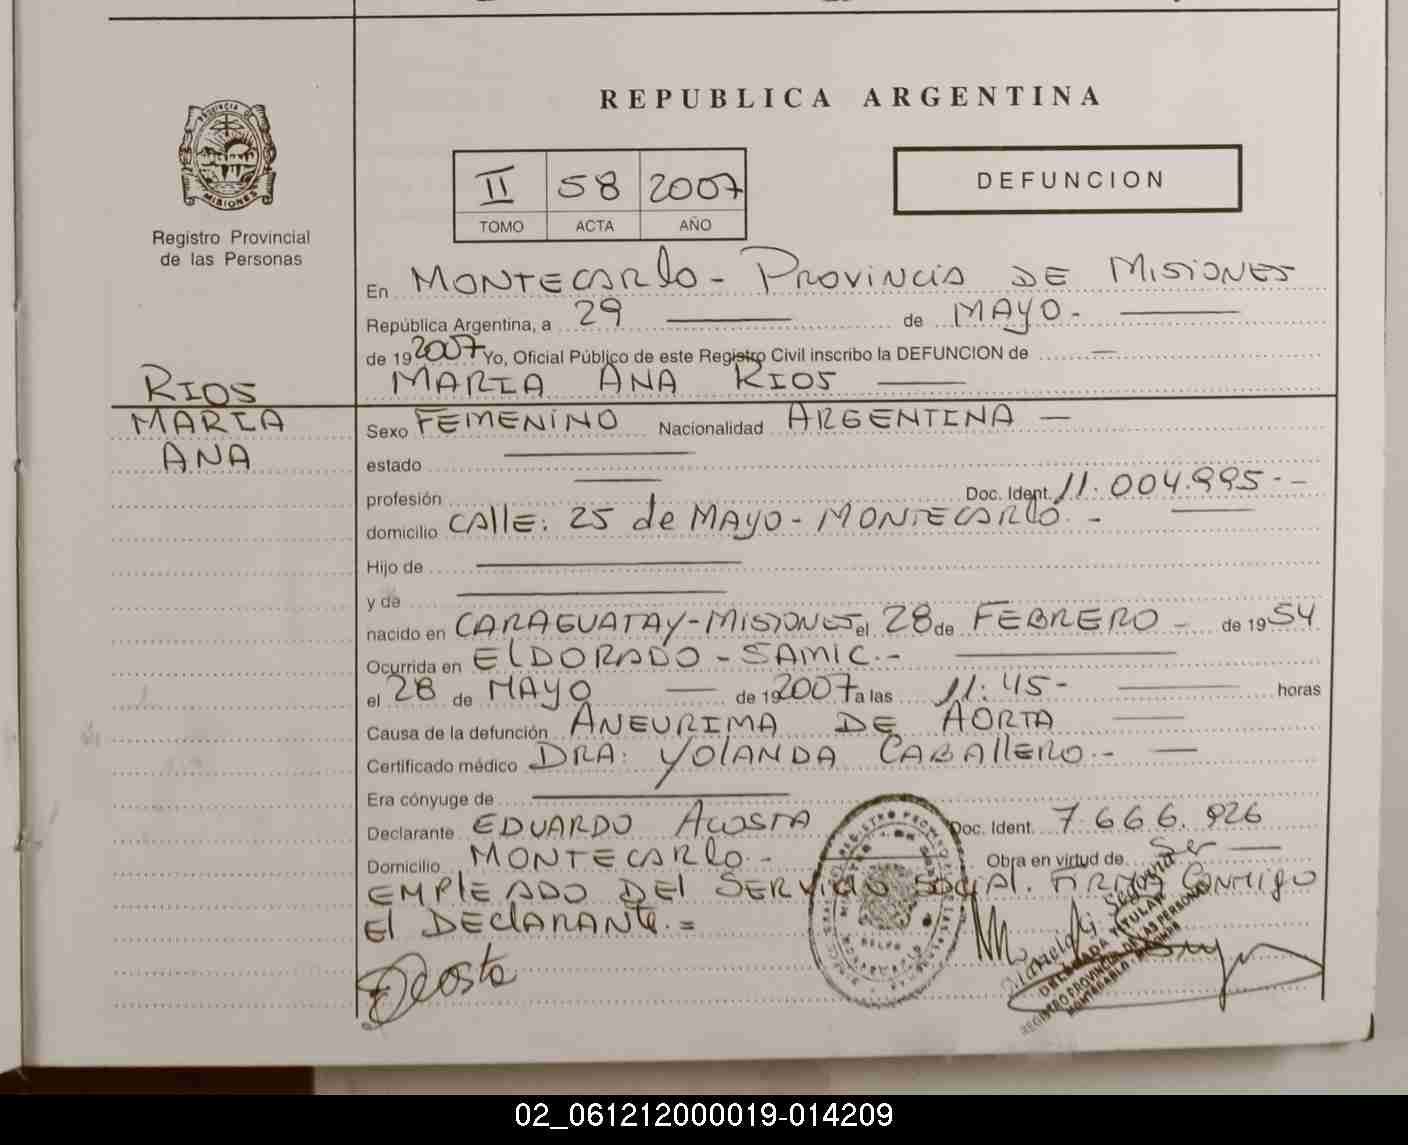 REPUBLICA ARGENTINA
PROVINCIA
MISIONES
II 58 2007
TOMO ACTA AÑO
DEFUNCION
Registro Provincial
de las Personas
En MONTECARLO - PROVINCIA DE MISIONES
República Argentina, a 29 de MAYO.
de 19 2007 Yo, Oficial Público de este Registro Civil inscribo la DEFUNCION de
RIOS
MARIA ANA RIOS
MARIA
ANA
Sexo FEMENINO Nacionalidad ARGENTINA
estado
profesión Doc. Ident. 11.004.995.-
domicilio CALLE: 25 de MAYO - MONTECARLO. -
Hijo de
y de
nacido en CARAGUATAY-MISIONES el 28 de FEBRERO - de 19 54
Ocurrida en ELDORADO - SAMIC.-
el 28 de MAYO de 19 2007 a las 11:45- horas
Causa de la defunción ANEURIMA DE AORTA
Certificado médico DRA: YOLANDA CABALLERO.-
Era cónyuge de
Declarante EDUARDO ACOSTA Doc. Ident. 7.666.926
Domicilio MONTECARLO.- Obra en virtud de Ser
EMPLEADO DEL SERVICIO SOCIAL. FIRMA CONMIGO
El DECLARANTE.=
Acosta
DELEGADA TITULAR
02_061212000019-014209